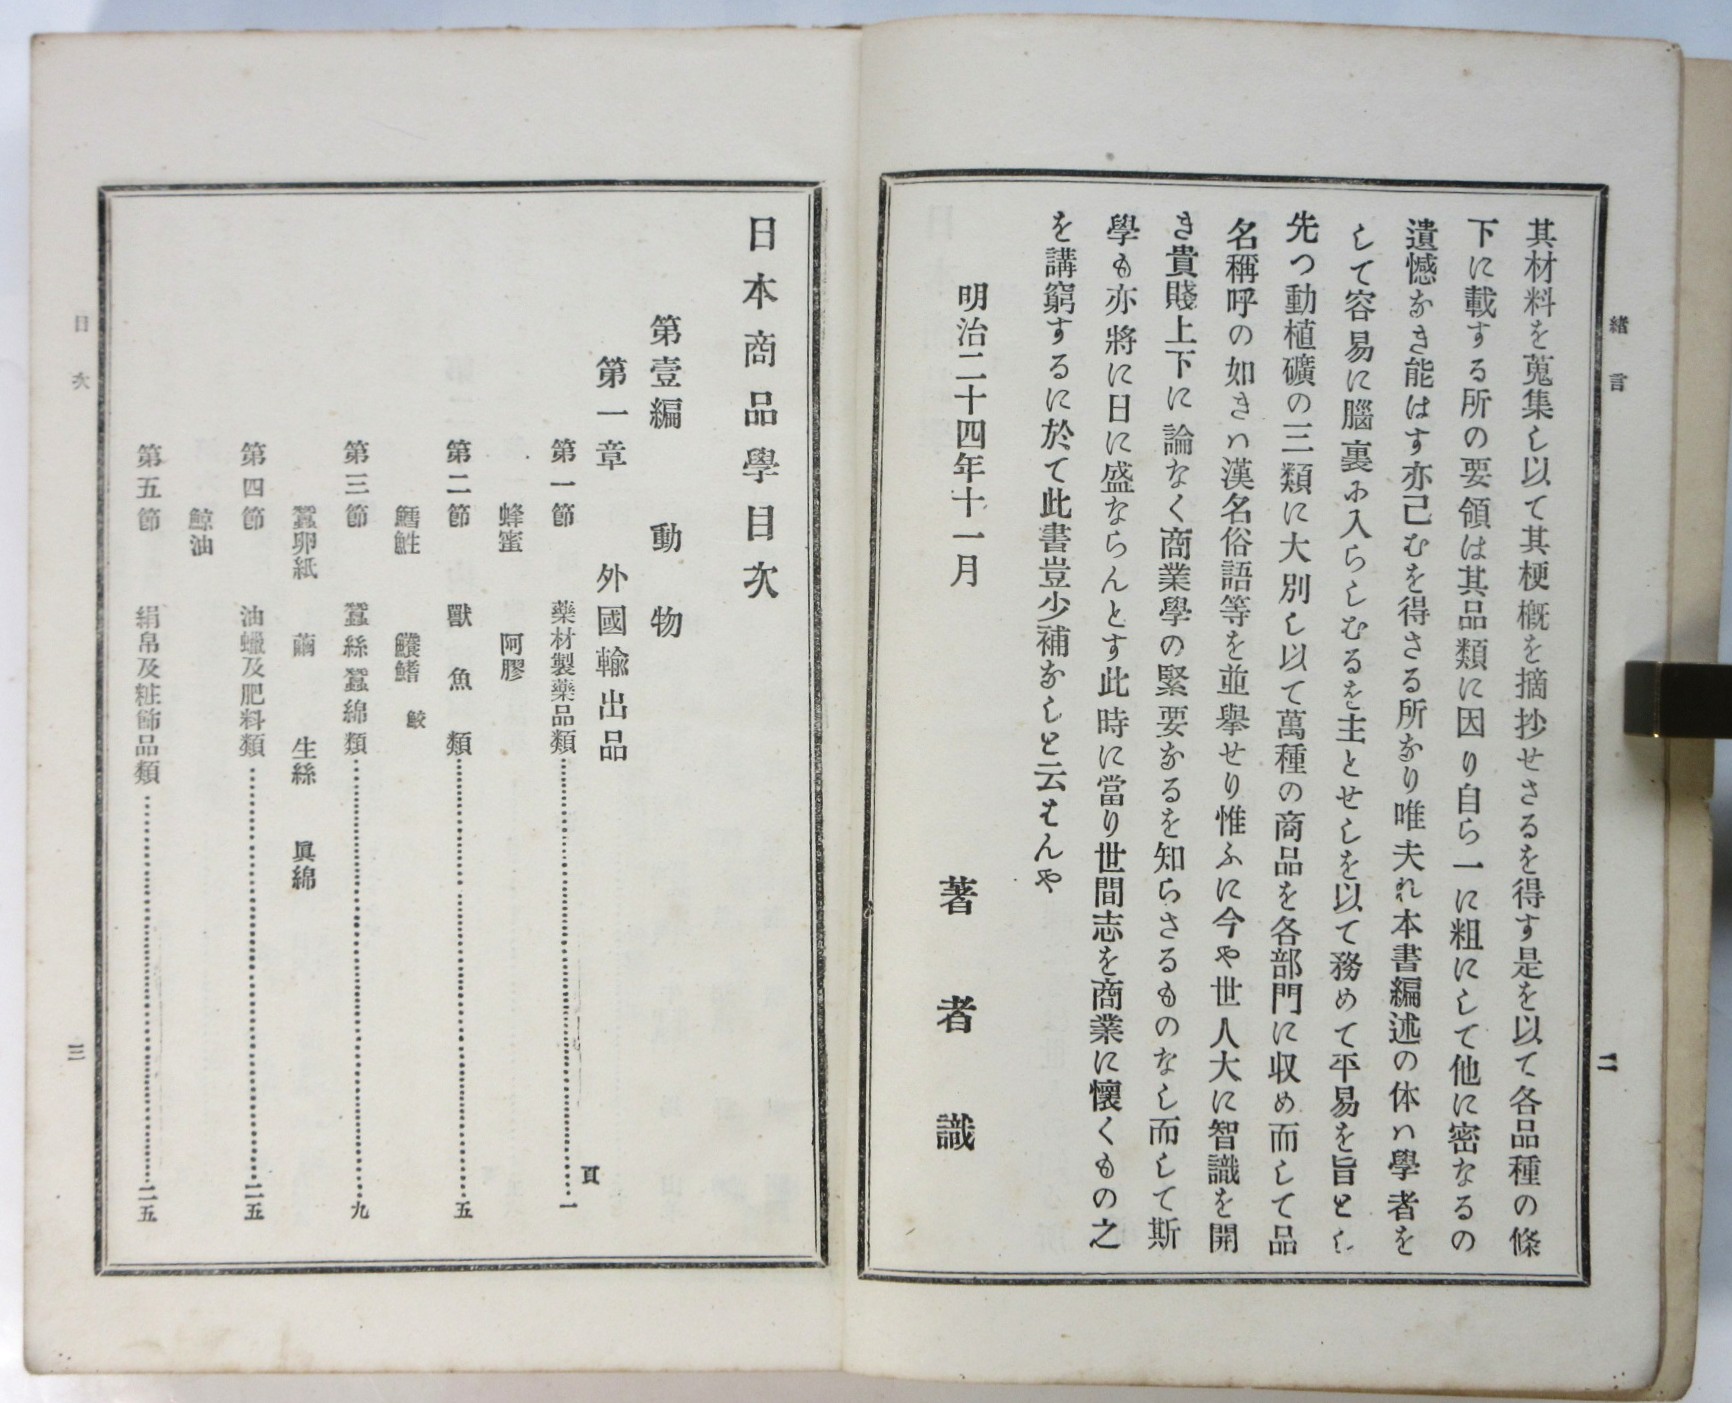 緒言
二
其材料を蒐集し以て其梗概を摘抄せさるを得す是を以て各品種の條
下に載する所の要領は其品類に因り自ら一に粗にして他に密なるの
遺憾なき能はす亦己むを得さる所なり唯夫れ本書編述の体ハ學者を
して容易に腦裏に入らしむるを主とせしを以て務めて平易を旨とし
先つ動植礦の三類に大別し以て萬種の商品を各部門に収め而して品
名稱呼の如きハ漢名俗語等を並擧せり惟ふに今や世人大に智識を開
き貴賤上下に論なく商業學の緊要なるを知らさるものなし而して斯
學も亦將に日に盛ならんとす此時に當り世間志を商業に懷くもの之
を講窮するに於て此書豈少補なしと云はんや
明治二十四年十一月
著者識
日本商品學目次
第壹編 動物
第一章 外國輸出品
頁
第一節 藥材製藥品類 一
蜂蜜 阿膠
第二節 獸魚類 五
鱈 鮫
第三節 蠶絲蠶綿類 九
蠶卵紙 繭 生絲 眞綿
第四節 油蠟及肥料類 二五
鯨油
第五節 絹帛及粧飾品類 二五
目次
三